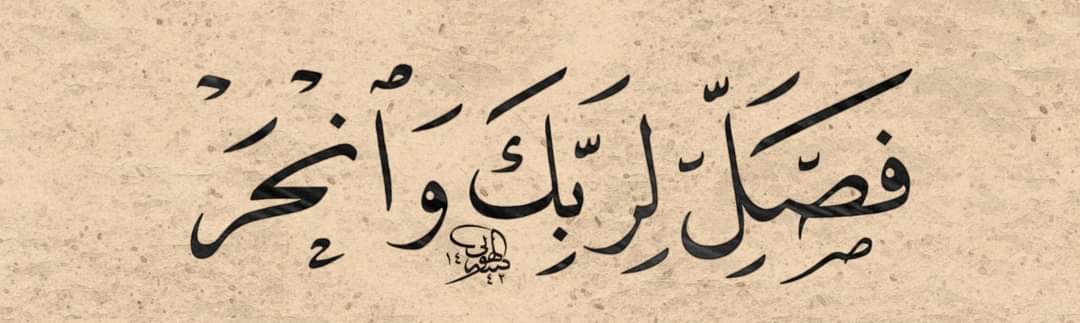 فَصَلِّ لِرَبِّكَ وَٱنْحَرْ
١٤٤٢